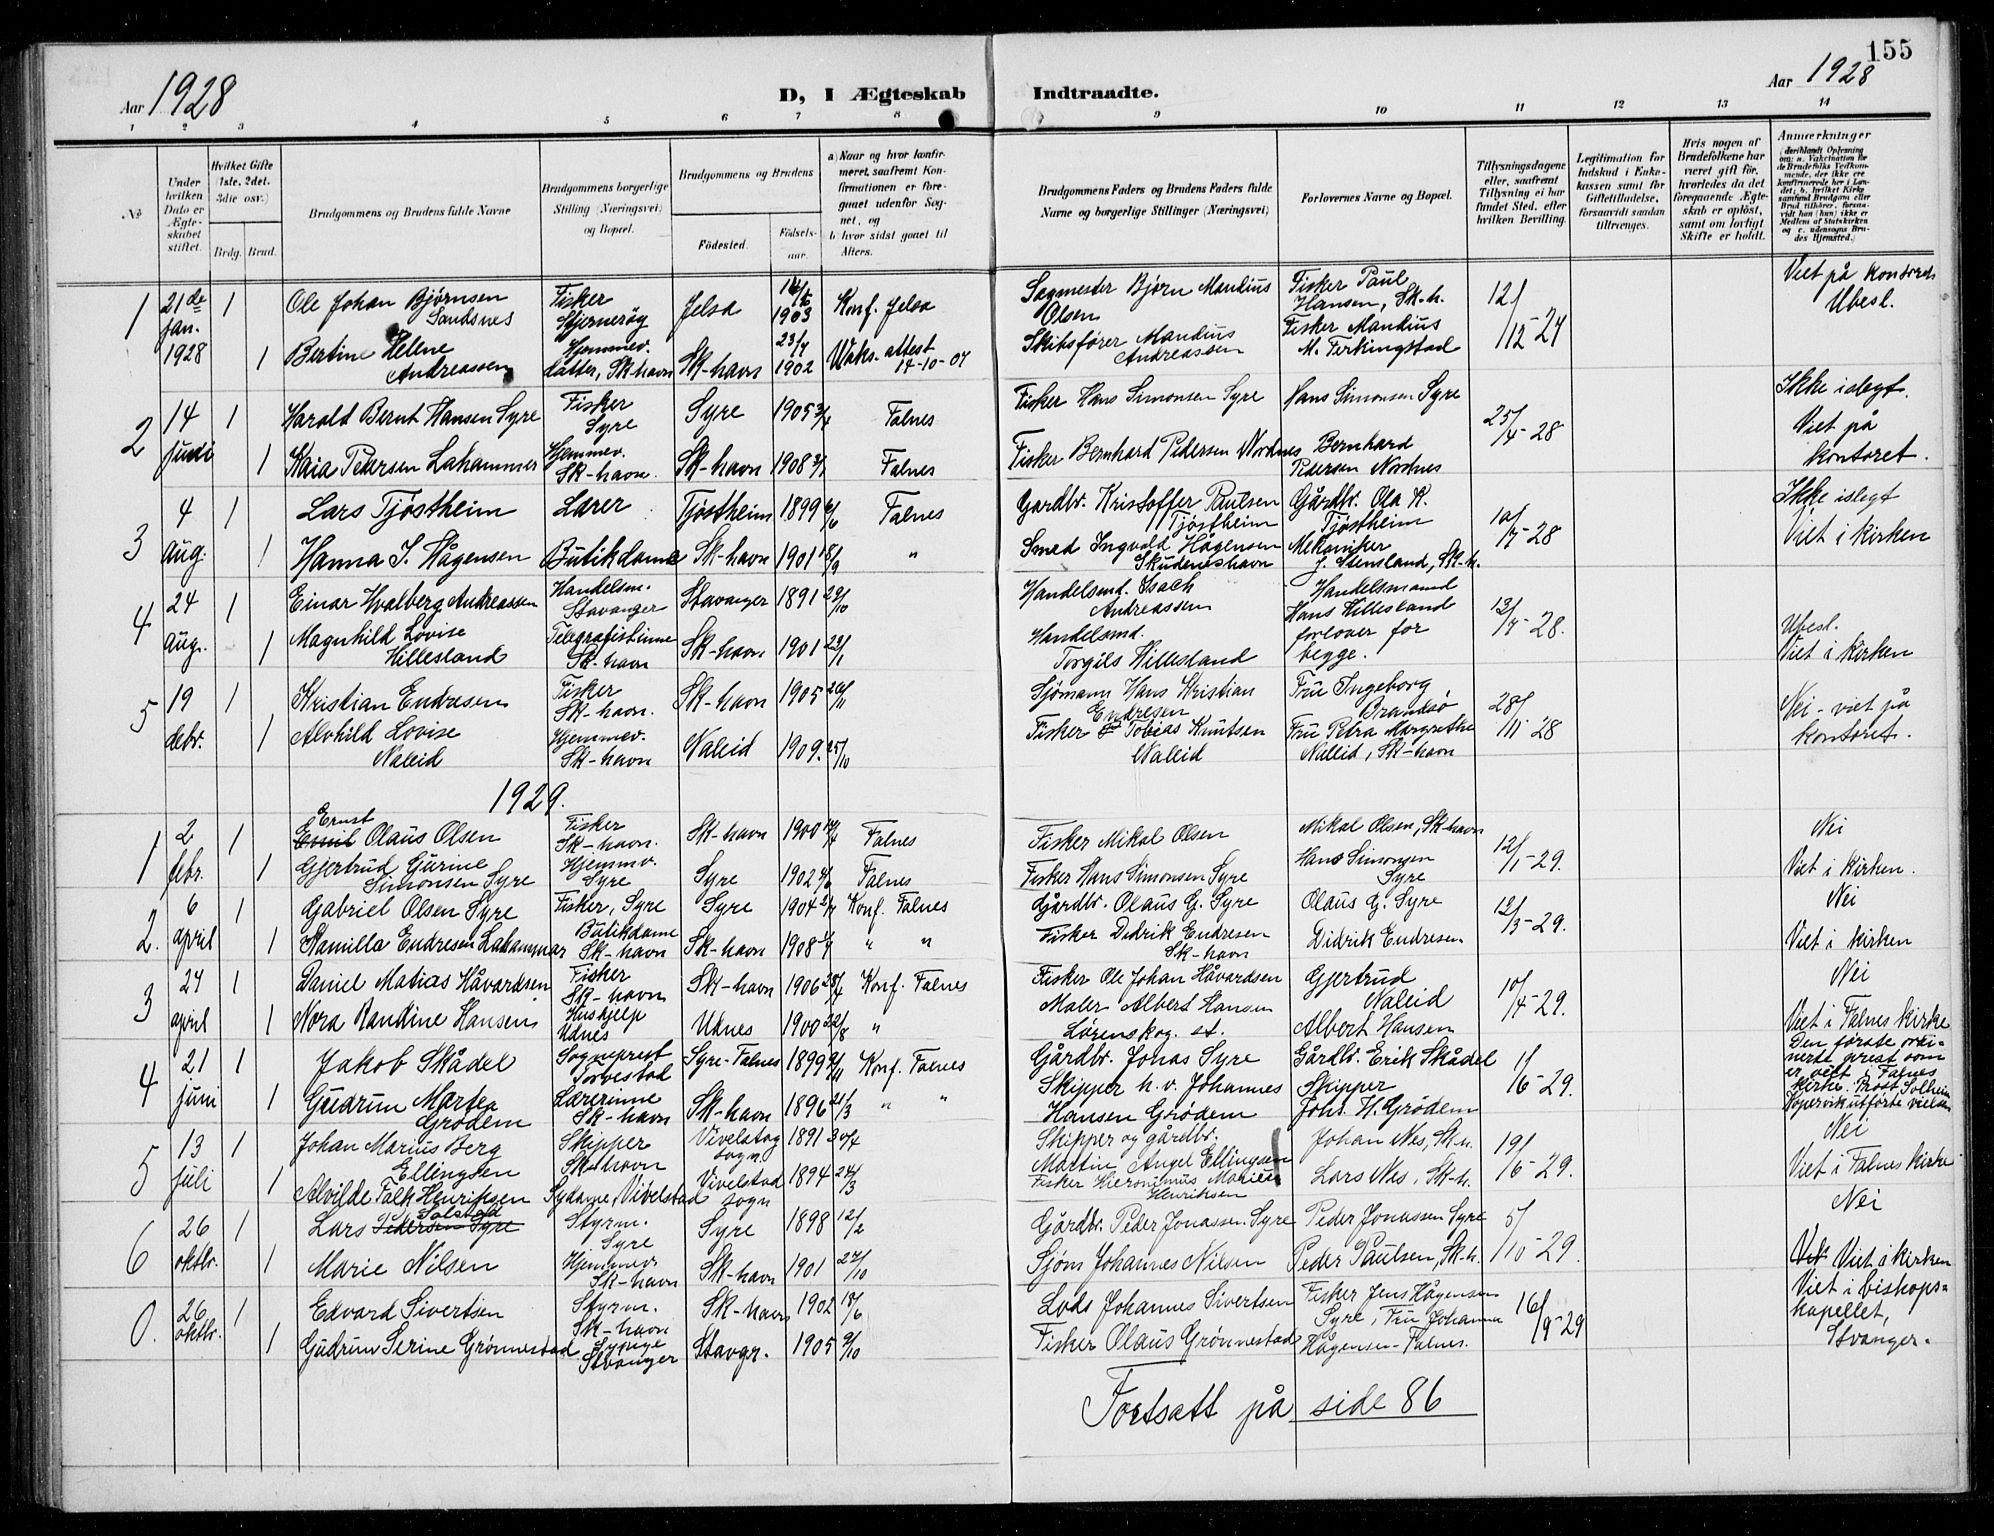 155
Aar 1928
D, I Ægteskab
Indtraadte.
Aar 1928
1 2 3 4 5 6 7 8 9 10 11 12 13 14
No
Under hvilken Dato er Ægteskabet stiftet.
Hvilket Gifte (1ste, 2det, 3die osv.)
Brdg. Brud.
Brudgommens og Brudens fulde Navne
Brudgommens borgerlige Stilling (Næringsvei) og Bopæl.
Brudgommens og Brudens
Födested.
Födselsaar.
a) Naar og hvor konfirmeret, saafremt Konfirmationen er foregaaet udenfor Sognet, og
b) hvor sidst gaaet til Alters.
Brudgommens Faders og Brudens Faders fulde Navne og borgerlige Stillinger (Næringsvei)
Forlovernes Navne og Bopæl.
Tillysningsdagene eller, saafremt Tillysning ei har fundet Sted, efter hvilken Bevilling.
Legitimation for Indskud i Enkekassen samt for Giftetilladelse, forsaavidt saadan tiltrænges.
Hvis nogen af Brudefolkene har været gift før, hvorledes da det foregaaende Ægteskab er oplöst, samt om lovligt Skifte er holdt.
Anmærkninger
1 21de jan. 1928 1 Ole Johan Bjørnsen Sandsnes Fisker Stjernerøy Jelsa 1903 Konf. Jelsa Sagmester Bjørn Mandius Olsen Fisker Paul Hansen, Sk-h. 12/12-27 Viet på kontoret Ubesl.
1 Bertine Helene Andreassen Hjemmev. datter, Sk-havn Sk-havn 23/7 1902 Vaks-attest 14-10-07 Skibsfører Mandius Andreassen Fisker Mandius M. Ferkingstad
2 14 juni 1 Harald Bernt Hansen Syre Fisker Syre Syre 1905 Falnes Fisker Hans Simonsen Syre Hans Simonsen Syre 25/4-28 Ikke i slegt.
1 Kaia Petersen Lahammer Hjemmev. Sk-havn. Sk-havn 1908 Falnes Fisker Bernhard Pedersen Nordnes Bernhard Pedersen Nordnes Viet på kontoret.
3 4 aug. 1 Lars Tjøstheim Lærer Tjøstheim 1899 Falnes Gardbr. Kristoffer Paulsen Tjøstheim Gårdbr. Ola K. Tjøstheim 10/7-28 Ikke islegt
1 Hanna I. Hågensen Butikdame Sk-havn 1901 18/9 " Smed Ingvald Hågensen Skudeneshavn Mekaniker J. Stensland, Sk-h. Viet i kirken
4 24 aug. 1 Einar Hvalberg Andreassen Handelsm. Stavanger Stavanger 1891 29/10 Handelsmd. Isach Andreassen Handelsmand Hans Hillesland forlover for begge. 13/7-28. Ubesl.
1 Magnhild Lovise Hillesland Telegrafistinne Sk-havn Sk-havn 1901 23/1 Handelsmd. Torgils Hillesland Viet i kirken
5 19 debr. 1 Kristian Endresen Fisker Sk-havn. Sk-havn 1905 20/11 Sjømann Hans Kristian Endresen Fru Ingeborg Brandsø 28/11-28 Nei-viet på kontoret.
1 Alvhild Lovise Naleid Hjemmev. Sk-havn Naleid 1909. 25/10 Fisker Tobias Knutsen Naleid Fru Petra Margrethe Naleid, Sk-havn
1929.
1 2 febr. 1 Ernst Emil Olaus Olsen Fisker Sk-havn. Sk-havn 1900 Falnes Fisker Mikal Olsen Mikal Olsen, Sk-havn 12/1-29. Nei
1 Gjertrud Gurine Simonsen Syre Hjemmv. Syre Syre 1902 Falnes Fisker Hans Simonsen Syre Hans Simonsen Syre Viet i kirken.
2. 6 april 1 Gabriel Olsen Syre Fisker, Syre Syre 1904 Konf. Falnes Gårdbr. Olaus G. Syre Olaus G. Syre 12/3-29. Nei
1 Kamilla Endresen Lahammar Butikdame Sk-havn Sk-havn 1908 " " Fisker Didrik Endresen Sk-havn Didrik Endresen. Viet i kirken
3 27 april 1 Daniel Matias Håvardsen Fisker Sk-havn Sk-havn 1906 Konf. Falnes Fisker Ole Johan Håvardsen Gjertrud Naleid 10/4-29. Nei
1 Nora Randine Hansen Hushjelp Udnes Udnes 1900 22/8 " Maler Albert Hansen Lørenskog. st. Albert Hansen Viet i Falnes kirke
4 21 juni 1 Jakob Skådel Sogneprest Torvestad Syre-Falnes 1899 9/11 Konf. Falnes Gårdbr. Jonas Syre Gårdbr. Erik Skådel 1/6-29. Den første ordinerte prest som er viet i Falnes kirke. Prost Solheim Kopervik utførte vielsen
1 Gudrun Martea Grødem Lærerinne Sk-havn Sk-havn 1896 21/3 " " Skipper h.v. Johannes Hansen Grødem Skipper Joh. H. Grødem
5 13 juli 1 Johan Marius Berg Ellingsen Skipper Sk-havn Vivelstad sogn. 1891 30/4 Skipper og gårdbr. Martin Angel Ellingsen Johan Nes, Sk-h. 19/6-29. Nei
1 Alvilde Falk Henriksen Sydame, Vivelstad Vivelstad sogn 1894 Fisker Hieronimus Henriksen Lars Nes, Sk-h. Viet i Falnes kirke
6 26 oktbr. 1 Lars Pedersen Syre Solstad Styrm. Syre Syre 1898 12/2 Gårdbr. Peder Jonassen Syre Peder Jonassen Syre 5/10-29. Nei
1 Marie Nilsen Hjemmev. Sk-havn Sk-havn 1901 27/10 Sjøm. Johannes Nilsen Peder Paulsen, Sk-h. Viet i kirken
0. 26 oktbr. 1 Edvard Sivertsen Styrm. Sk-havn Sk-havn 1902 18/6 Lods Johannes Sivertsen Fisker Jens Hågensen Syre, Fru Johanna Hågensen-Falnes. 16/9-29 Viet i bispekapellet, Stvanger.
1 Gudrun Serine Grønnestad Syerge Stvanger Stavgr. 1905 9/10 Fisker Olaus Grønnestad
Fortsatt på side 86